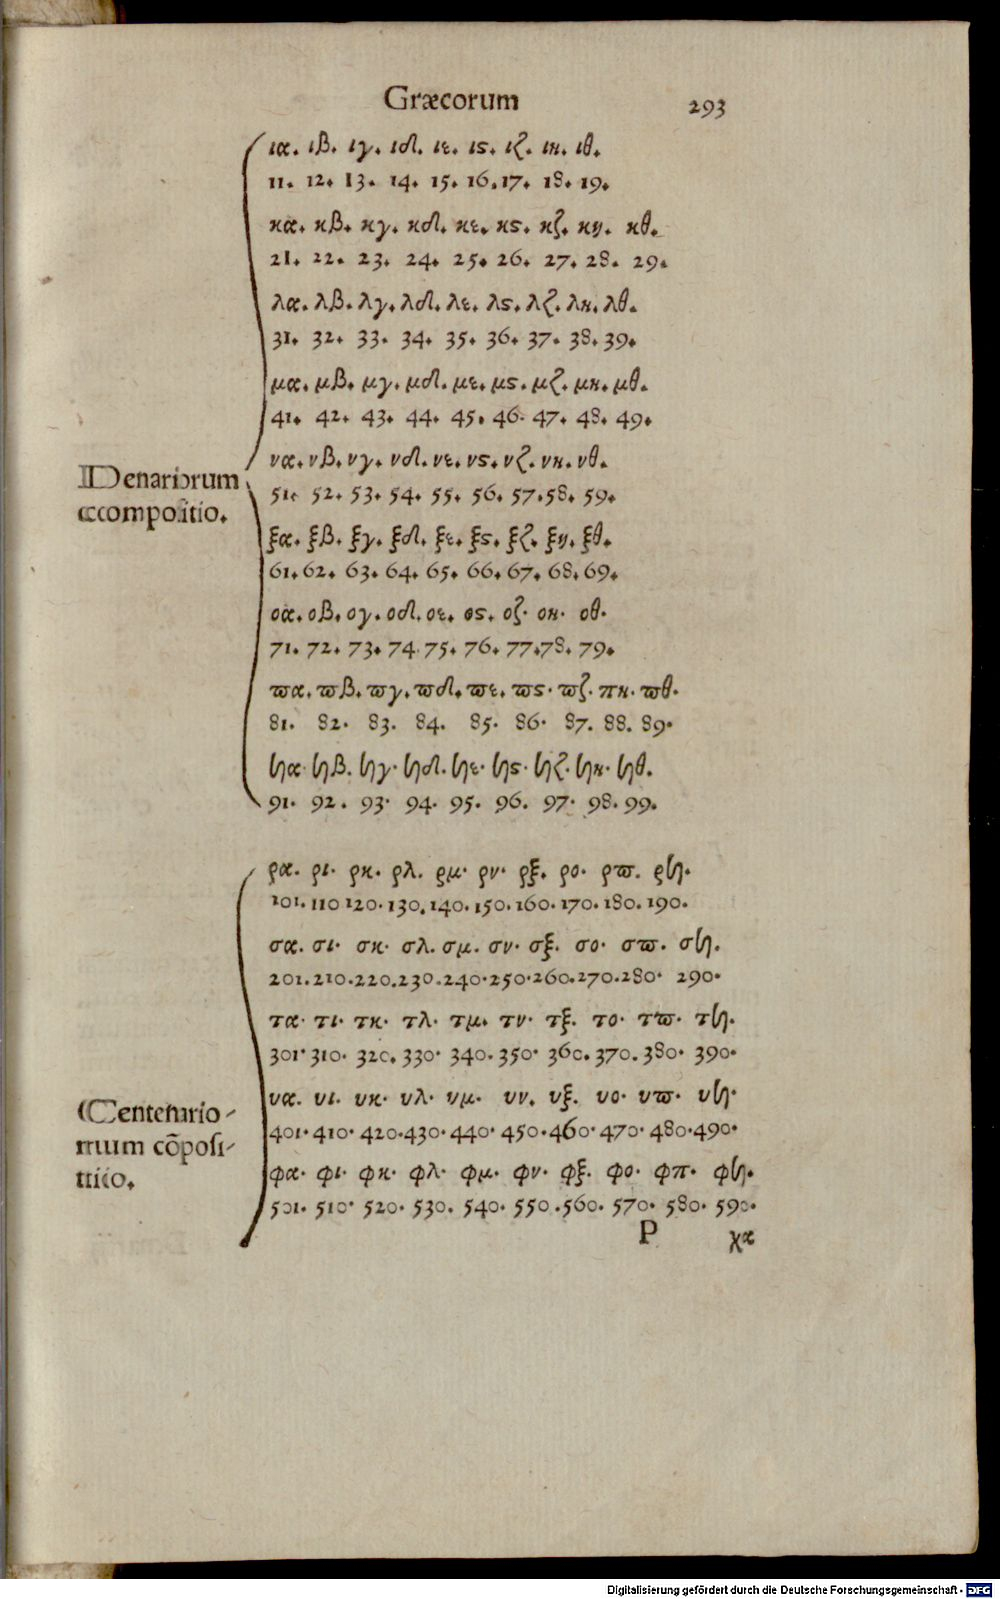 Græcorum 293
ια. ιβ. ιγ. ιδ. ιε. ις. ιζ. ιη. ιθ.
11. 12. 13. 14. 15. 16. 17. 18. 19.
κα. κβ. κγ. κδ. κε. κς. κζ. κη. κθ.
21. 22. 23. 24. 25. 26. 27. 28. 29.
λα. λβ. λγ. λδ. λε. λς. λζ. λη. λθ.
31. 32. 33. 34. 35. 36. 37. 38. 39.
μα. μβ. μγ. μδ. με. μς. μζ. μη. μθ.
41. 42. 43. 44. 45. 46. 47. 48. 49.
να. νβ. νγ. νδ. νε. νς. νζ. νη. νθ.
Denariorum
compositio.
51. 52. 53. 54. 55. 56. 57. 58. 59.
ξα. ξβ. ξγ. ξδ. ξε. ξς. ξζ. ξη. ξθ.
61. 62. 63. 64. 65. 66. 67. 68. 69.
οα. οβ. ογ. οδ. οε. ος. οζ. οη. οθ.
71. 72. 73. 74. 75. 76. 77. 78. 79.
ϖα. ϖβ. ϖγ. ϖδ. ϖε. ϖς. ϖζ. πη. ϖθ.
81. 82. 83. 84. 85. 86. 87. 88. 89.
ϟα. ϟβ. ϟγ. ϟδ. ϟε. ϟς. ϟζ. ϟη. ϟθ.
91. 92. 93. 94. 95. 96. 97. 98. 99.
ρα. ρι. ρκ. ρλ. ρμ. ρν. ρξ. ρο. ρϖ. ρϟ.
101. 110 120. 130. 140. 150. 160. 170. 180. 190.
σα. σι. σκ. σλ. σμ. σν. σξ. σο. σϖ. σϟ.
201. 210. 220. 230. 240. 250. 260. 270. 280. 290.
τα. τι. τκ. τλ. τμ. τν. τξ. το. τϖ. τϟ.
301. 310. 320. 330. 340. 350. 360. 370. 380. 390.
υα. υι. υκ. υλ. υμ. υν. υξ. υο. υϖ. υϟ.
Centenario-
rum cõposi-
tio.
401. 410. 420. 430. 440. 450. 460. 470. 480. 490.
φα. φι. φκ. φλ. φμ. φν. φξ. φο. φπ. φϟ.
501. 510. 520. 530. 540. 550. 560. 570. 580. 590.
P χα
Digitalisierung gefördert durch die Deutsche Forschungsgemeinschaft - DFG